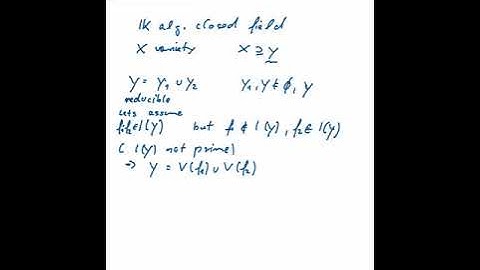 𝕂 alg. closed field
X variety X ⊇ Y
Y = Y₁ ∪ Y₂ Y₁, Y ≠ ∅, Y
reducible
lets assume
f₁f₂ ∈ I(Y) but f₁ ∉ I(Y), f₂ ∉ I(Y)
( I(Y) not prime)
→ Y = V(f₁) ∪ V(f₂)